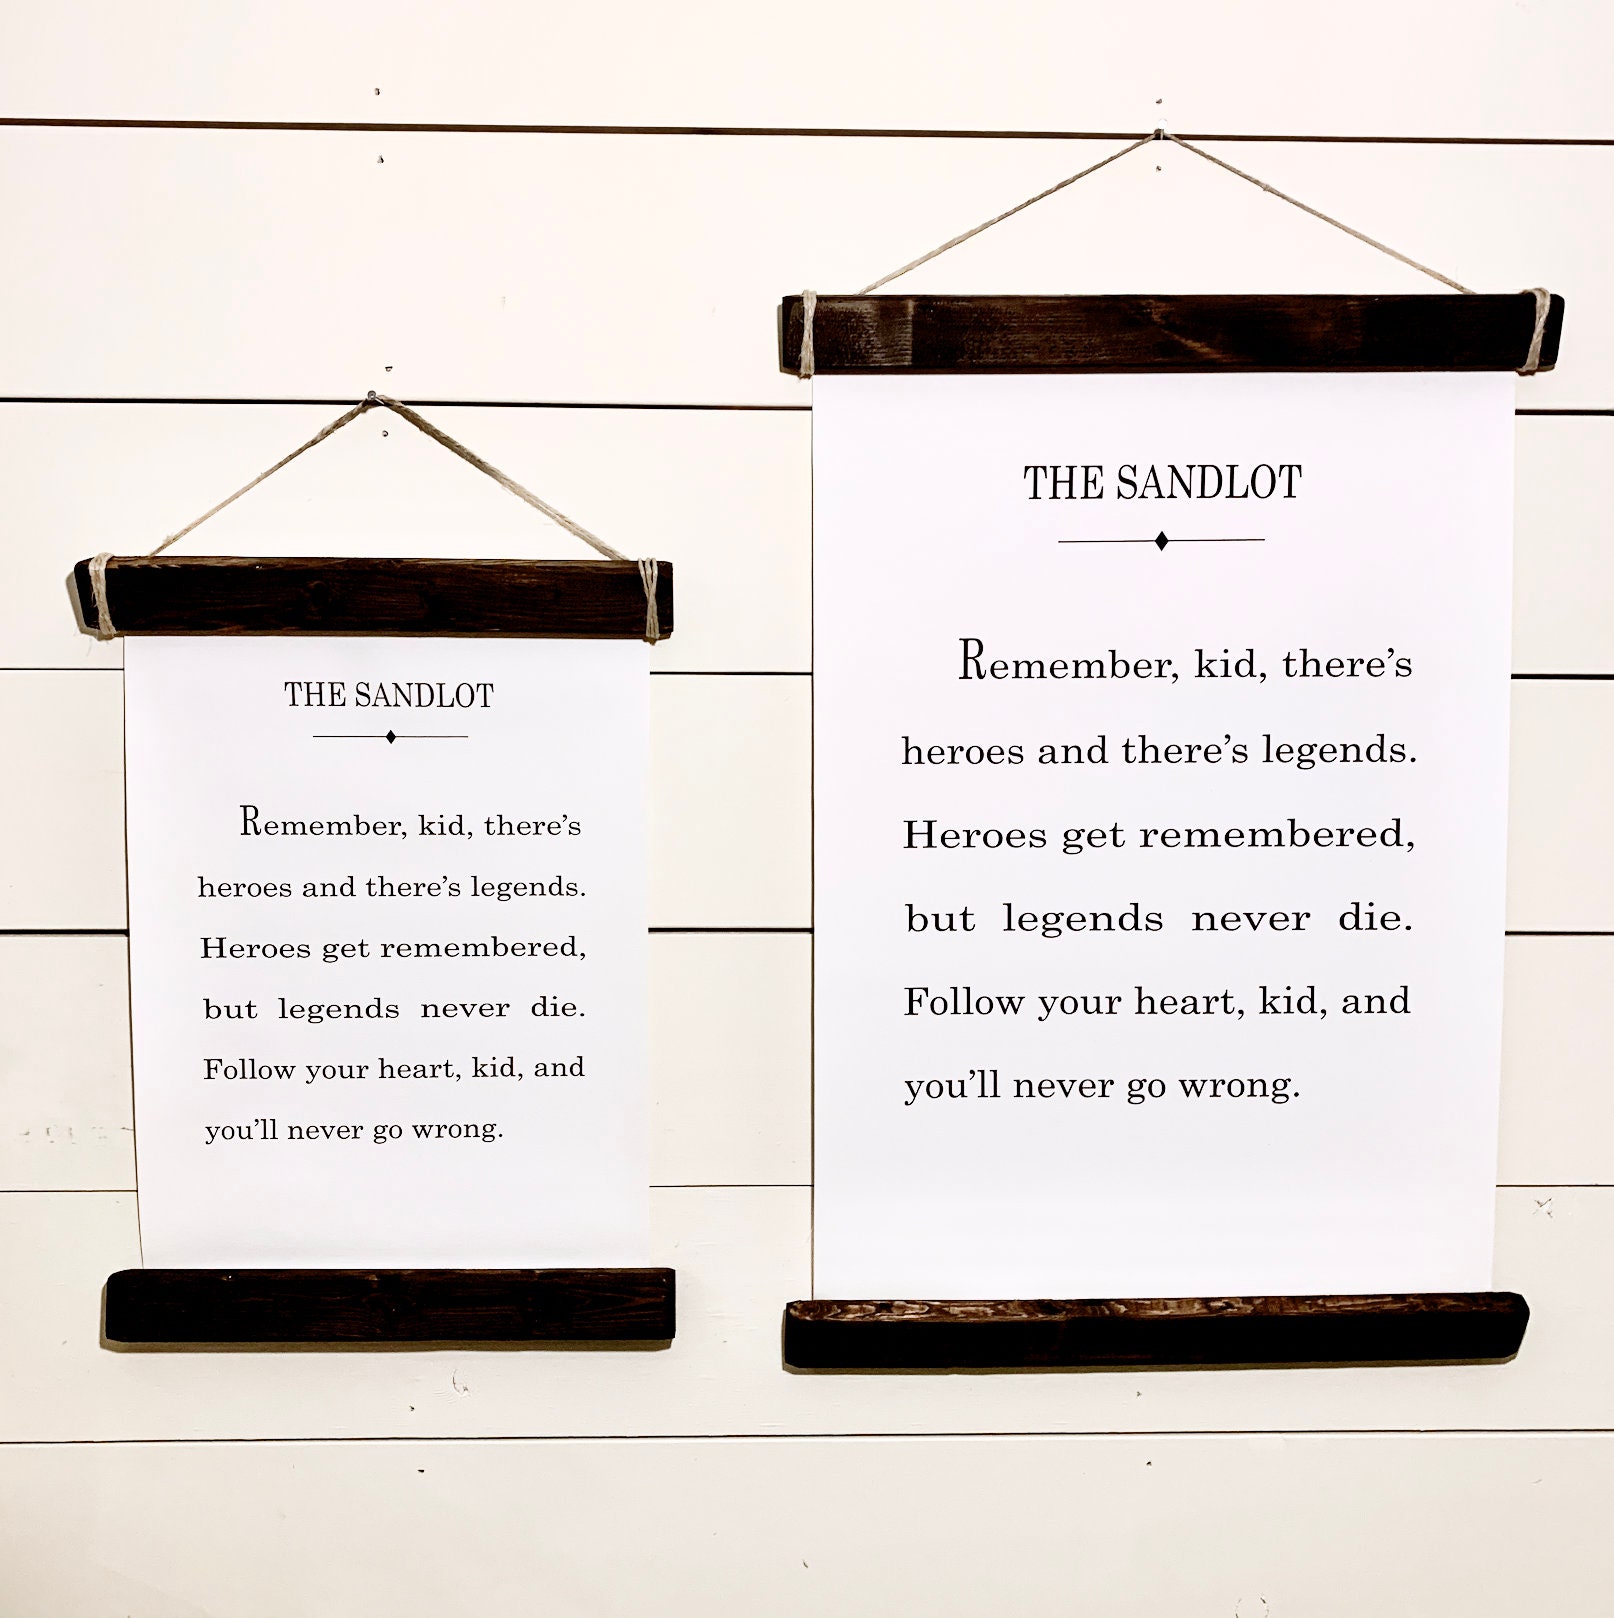 THE SANDLOT
Remember, kid, there's
heroes and there's legends.
Heroes get remembered,
but legends never die.
Follow your heart, kid, and
you'll never go wrong.
THE SANDLOT
Remember, kid, there's
heroes and there's legends.
Heroes get remembered,
but legends never die.
Follow your heart, kid, and
you'll never go wrong.